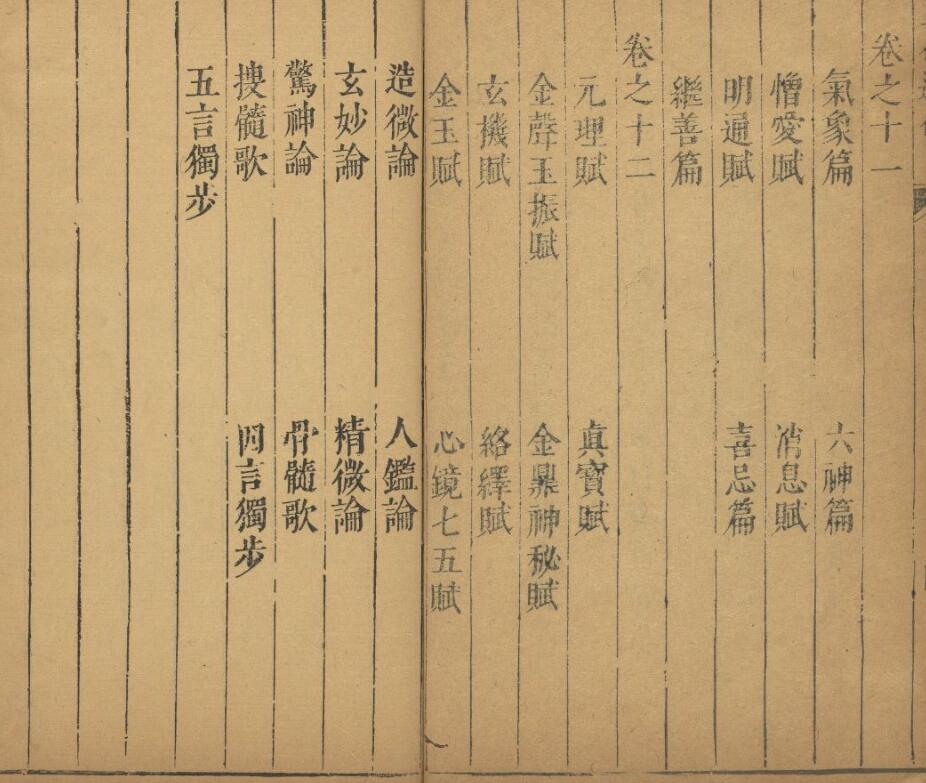 卷之十一
氣象篇 六神篇
憎愛賦 消息賦
明通賦 喜忌篇
繼善篇
卷之十二
元理賦 真寶賦
金聲玉振賦 金鼎神秘賦
玄機賦 絡繹賦
金玉賦 心鏡七五賦
造微論 人鑑論
玄妙論 精微論
驚神論 骨髓歌
搜髓歌 四言獨步
五言獨步